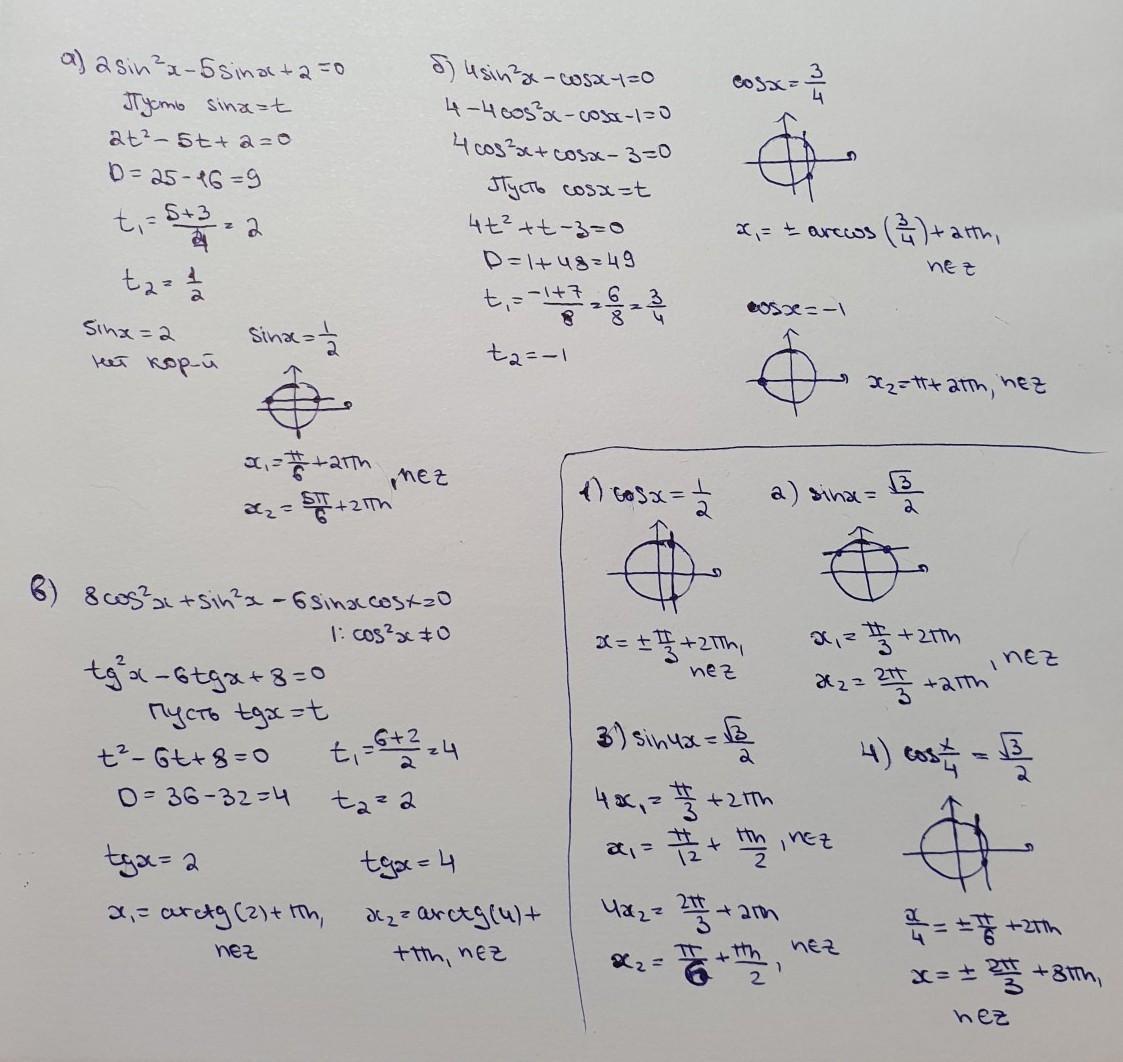 а) 2sin²x - 5sinx + 2 = 0
Пусть sinx = t
2t² - 5t + 2 = 0
D = 25 - 16 = 9
t₁ = (5+3)/4 = 2
t₂ = 1/2
sinx = 2
нет кор-й
sinx = 1/2
x₁ = π/6 + 2πn
x₂ = 5π/6 + 2πn
, n∈z
б) 4sin²x - cosx - 1 = 0
4 - 4cos²x - cosx - 1 = 0
4cos²x + cosx - 3 = 0
Пусть cosx = t
4t² + t - 3 = 0
D = 1 + 48 = 49
t₁ = (-1+7)/8 = 6/8 = 3/4
t₂ = -1
cosx = 3/4
x₁ = ± arccos (3/4) + 2πn,
n∈z
cosx = -1
x₂ = π + 2πn, n∈z
в) 8cos²x + sin²x - 6sinxcosx = 0
1: cos²x ≠ 0
tg²x - 6tgx + 8 = 0
Пусть tgx = t
t² - 6t + 8 = 0
D = 36 - 32 = 4
t₁ = (6+2)/2 = 4
t₂ = 2
tgx = 2
x₁ = arctg(2) + πn,
n∈z
tgx = 4
x₂ = arctg(4) +
+ πn, n∈z
1) cosx = 1/2
x = ± π/3 + 2πn,
n∈z
2) sinx = √3/2
x₁ = π/3 + 2πn
x₂ = 2π/3 + 2πn
, n∈z
3) sin4x = √3/2
4x₁ = π/3 + 2πn
x₁ = π/12 + πn/2, n∈z
4x₂ = 2π/3 + 2πn
x₂ = π/6 + πn/2, n∈z
4) cos x/4 = √3/2
x/4 = ± π/6 + 2πn
x = ± 2π/3 + 8πn,
n∈z